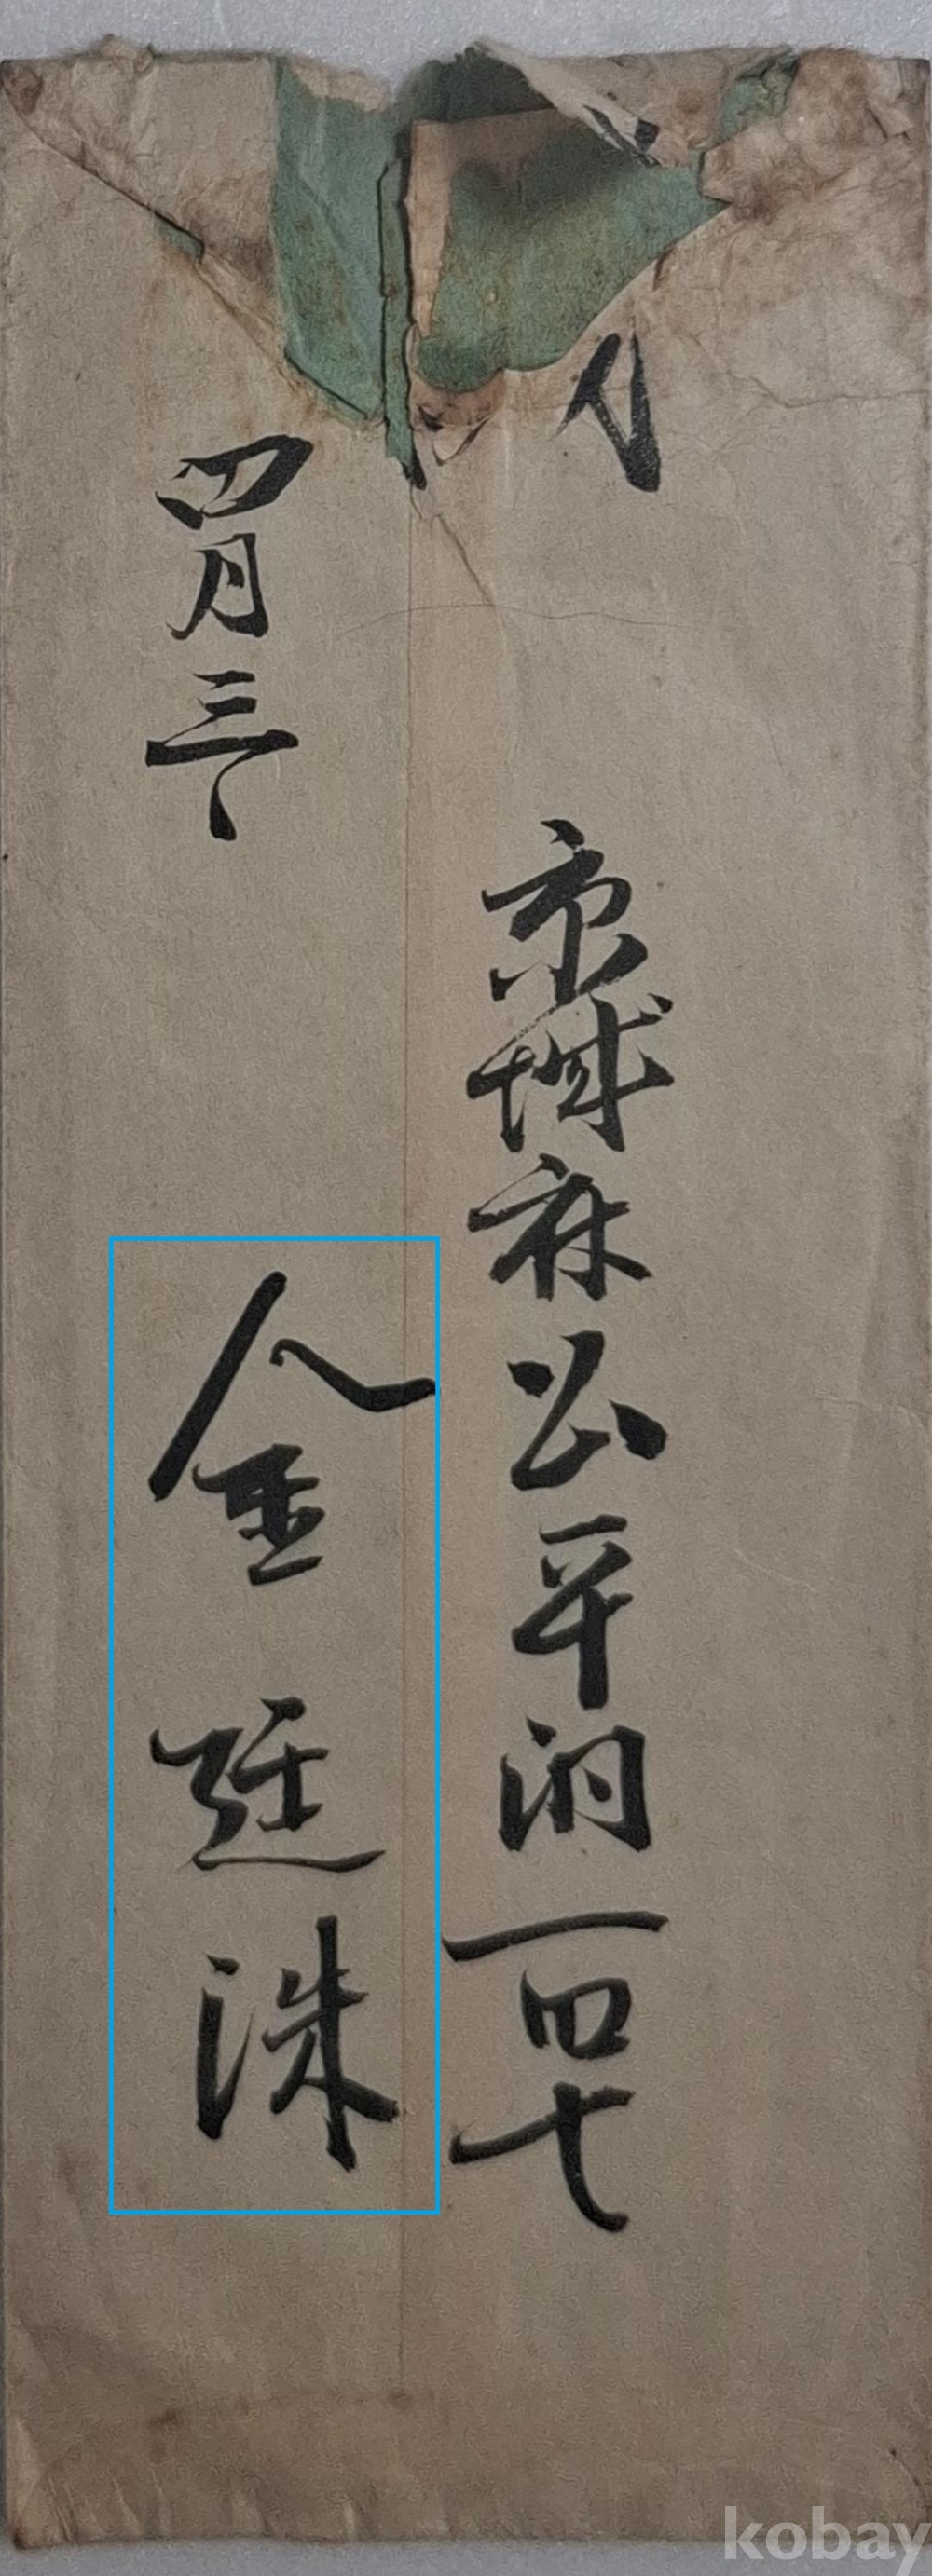 京城府公平洞一四七
四月三
金廷洙
kobay